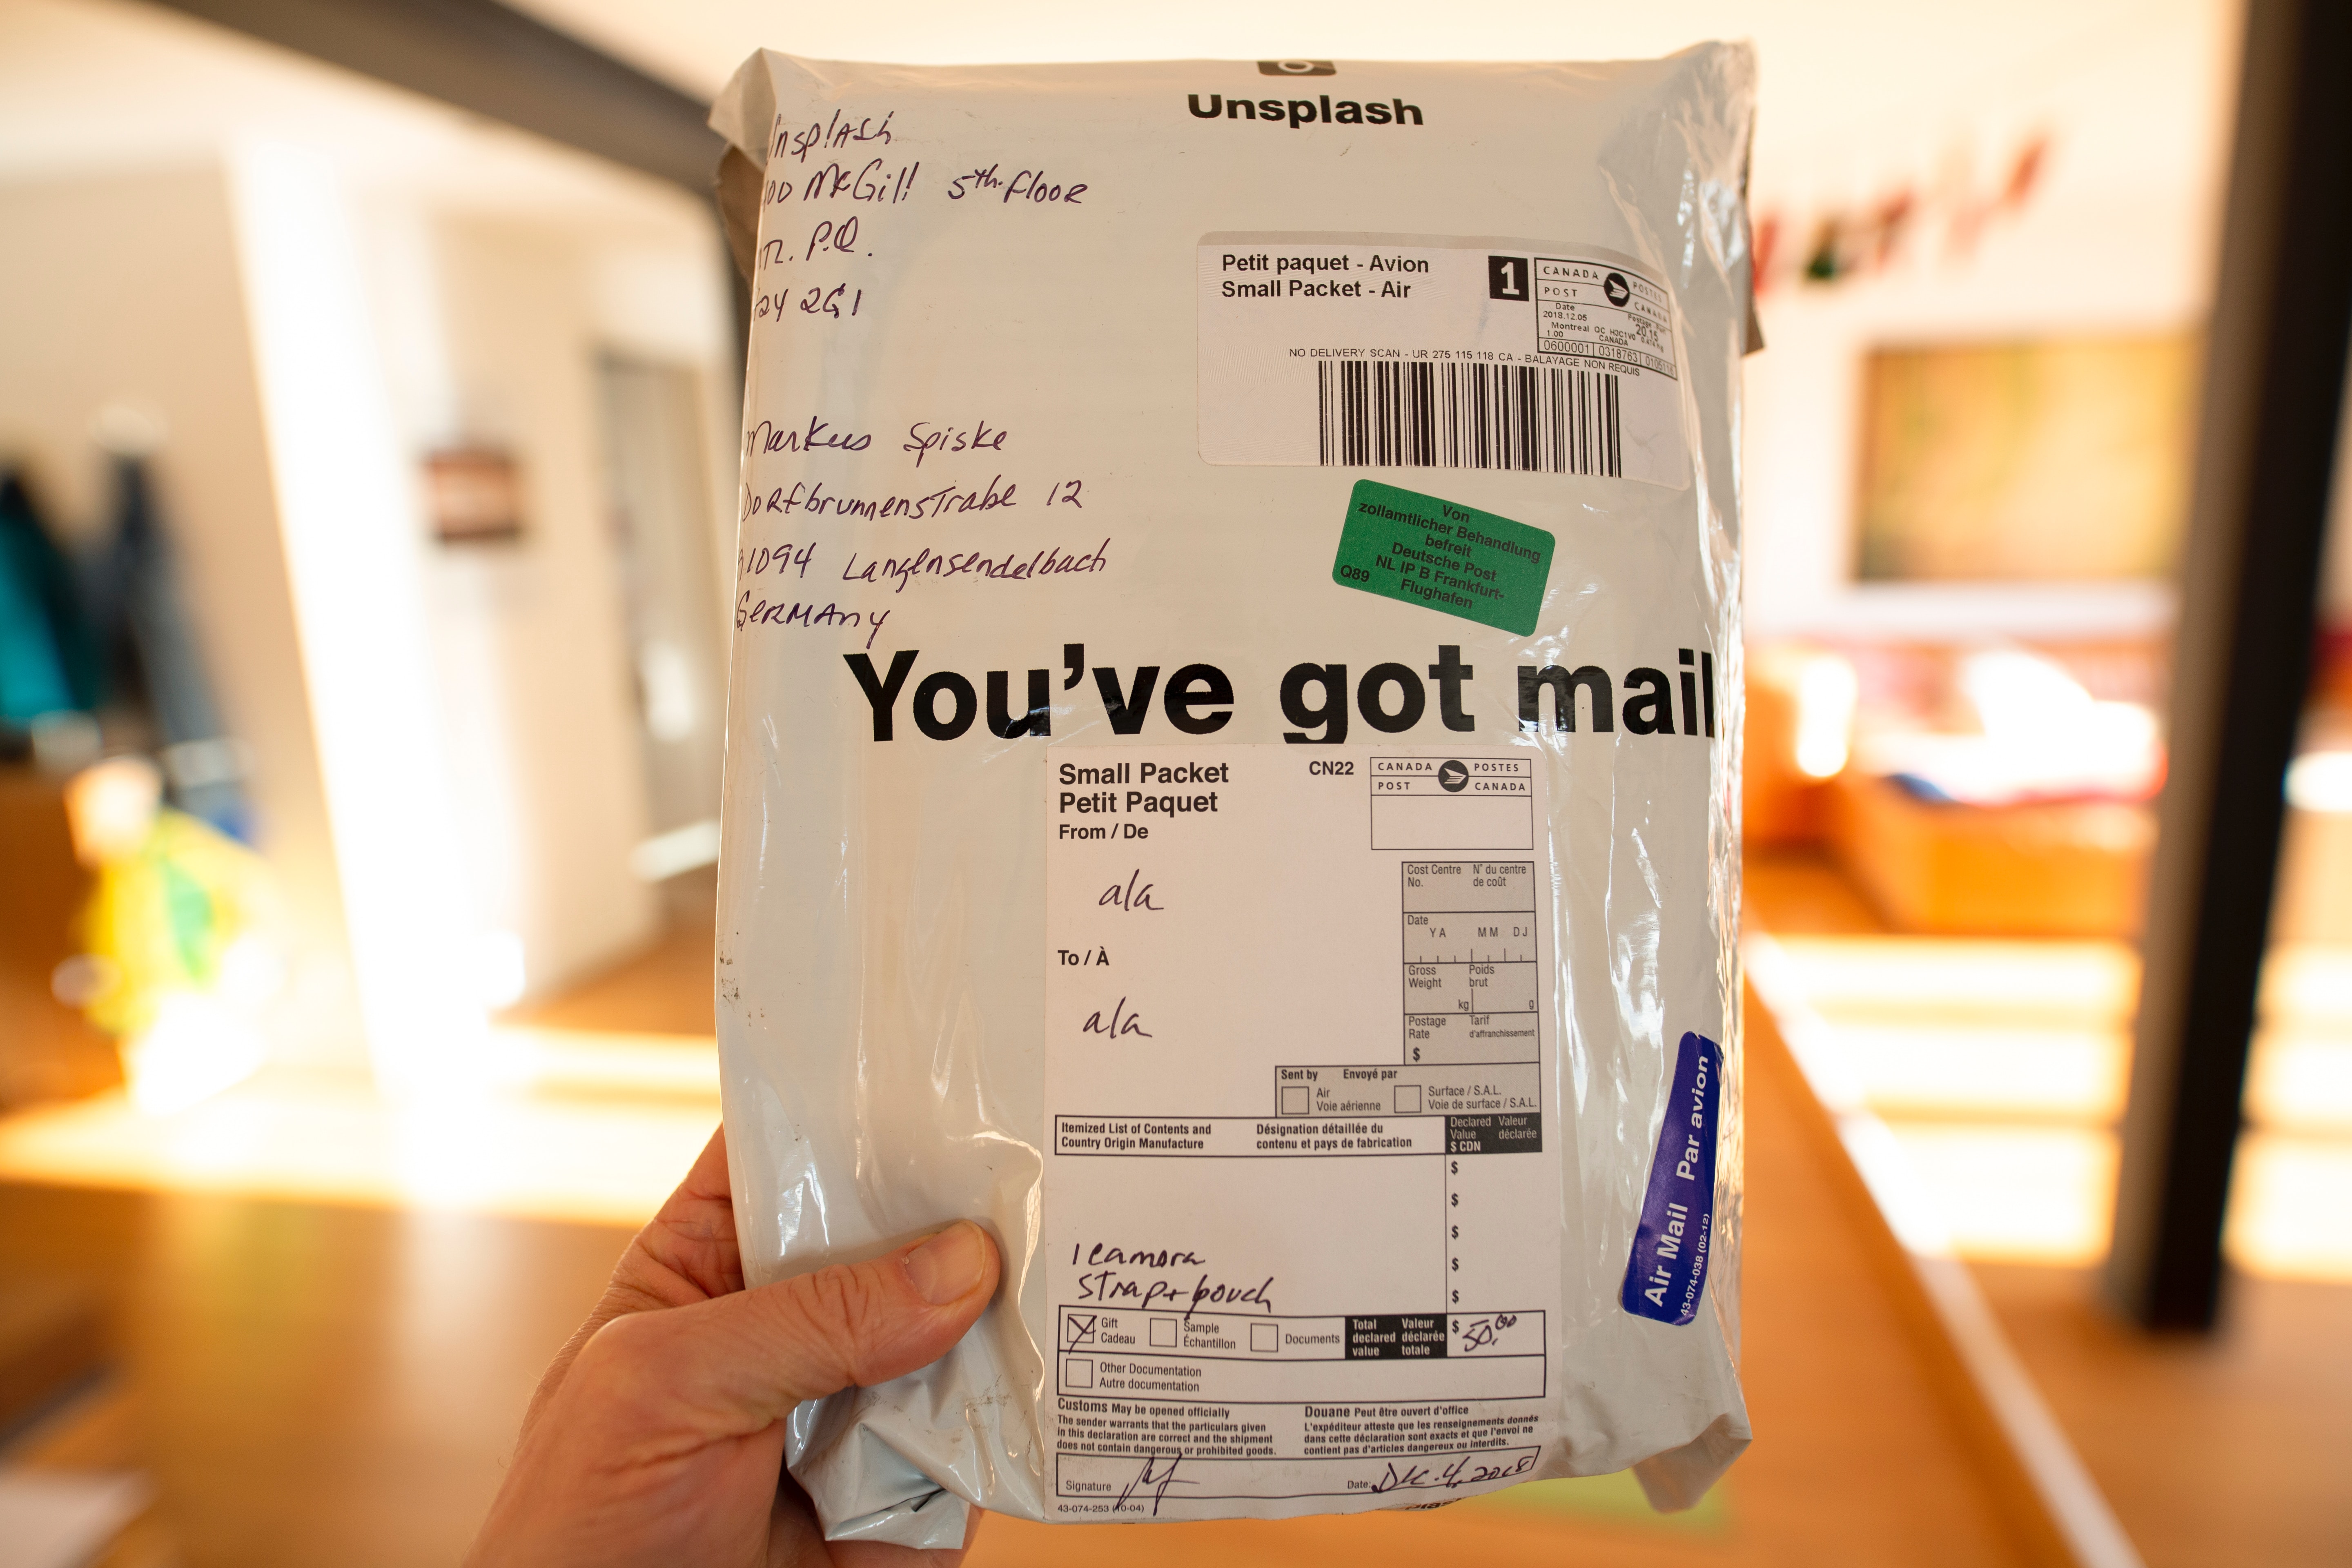 Unsplash
nsplash
00 McGill 5th. floor
P.Q.
2Y 2G1
Petit paquet - Avion
Small Packet - Air
1
CANADA POSTES
POST CANADA
Date
2018.12.05
Montreal QC H3C1V0
1.00 CANADA
20.15
0600001 0318763
NO DELIVERY SCAN - UR 275 115 118 CA - BALAYAGE NON REQUIS
Markus Spiske
Dorfbrunnenstraße 12
1094 Langensendelbach
Germany
Von
zollamtlicher Behandlung
befreit
Deutsche Post
NL IP B Frankfurt-
Q89 Flughafen
You've got mail
Small Packet
Petit Paquet
CN22
CANADA POSTES
POST CANADA
From / De
a/a
To / À
a/a
Cost Centre N° du centre
No. de coût
Date
Y A M M D J
Gross Poids
Weight brut
kg g
Postage Tarif
Rate d'affranchissement
$
Sent by Envoyé par
Air
Voie aérienne
Surface / S.A.L.
Voie de surface / S.A.L.
Itemized List of Contents and
Country Origin Manufacture
Désignation détaillée du
contenu et pays de fabrication
Declared Valeur
Value déclarée
$ CDN
$
$
$
$
$
1 camera
strap + pouch
Gift
Cadeau
Sample
Échantillon
Documents
Total Valeur
declared déclarée
value totale
$ 50,00
Other Documentation
Autre documentation
Customs May be opened officially
The sender warrants that the particulars given
in this declaration are correct and the shipment
does not contain dangerous or prohibited goods.
Douane Peut être ouvert d'office
L'expéditeur atteste que les renseignements donnés
dans cette déclaration sont exacts et que l'envoi ne
contient pas d'articles dangereux ou interdits.
Signature
Date: Dec. 4, 2018
43-074-253 (10-04)
Air Mail Par avion
43-074-038 (02-12)